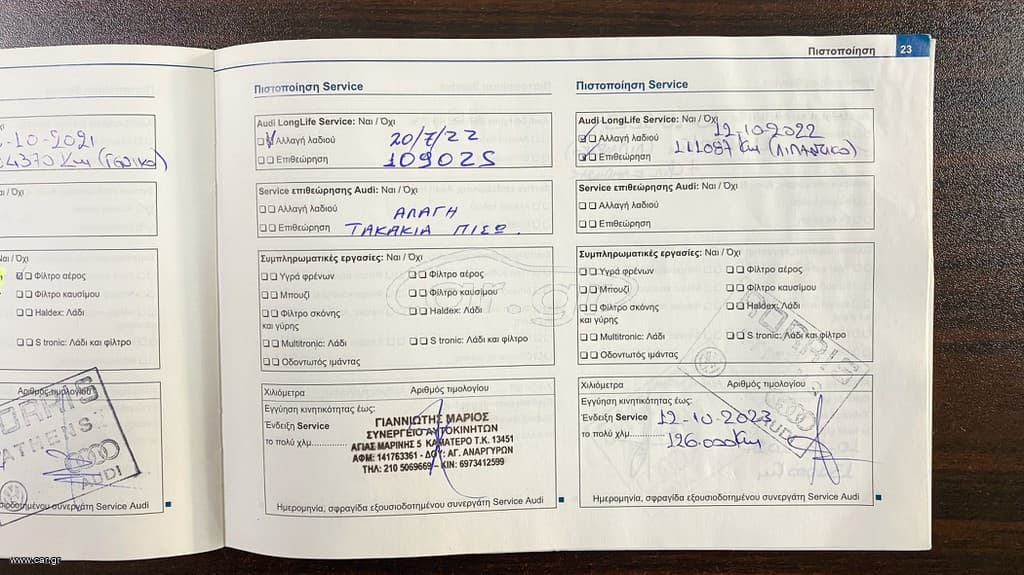 Πιστοποίηση 23
-10-2021
4370 Km (
αι / Όχι
Ναι / Όχι
Φίλτρο αέρος
Φίλτρο καυσίμου
Haldex: Λάδι
S tronic: Λάδι και φίλτρο
Αριθμός τιμολογίου
ATHENS
AUDI
σιοδοτημένου συνεργάτη Service Audi
Πιστοποίηση Service
Audi LongLife Service: Ναι / Όχι
Αλλαγή λαδιού 20/7/22
Επιθεώρηση 109025
Service επιθεώρησης Audi: Ναι / Όχι
Αλλαγή λαδιού ΑΛΑΓΗ
Επιθεώρηση ΤΑΚΑΚΙΑ ΠΙΣΩ.
Συμπληρωματικές εργασίες: Ναι / Όχι
Υγρά φρένων Φίλτρο αέρος
Μπουζί Φίλτρο καυσίμου
Φίλτρο σκόνης Haldex: Λάδι
και γύρης
Multitronic: Λάδι S tronic: Λάδι και φίλτρο
Οδοντωτός ιμάντας
car.gr
Χιλιόμετρα Αριθμός τιμολογίου
Εγγύηση κινητικότητας έως:
Ένδειξη Service
το πολύ χλμ
ΓΙΑΝΝΙΩΤΗΣ ΜΑΡΙΟΣ
ΣΥΝΕΡΓΕΙΟ ΑΥΤΟΚΙΝΗΤΩΝ
ΑΓΙΑΣ ΜΑΡΙΝΗΣ 5 ΚΑΜΑΤΕΡΟ Τ.Κ. 13451
ΑΦΜ: 141763361 - ΔΟΥ: ΑΓ. ΑΝΑΡΓΥΡΩΝ
ΤΗΛ: 210 5069669 - ΚΙΝ: 6973412599
Ημερομηνία, σφραγίδα εξουσιοδοτημένου συνεργάτη Service Audi
Πιστοποίηση Service
Audi LongLife Service: Ναι / Όχι
Αλλαγή λαδιού 12-10-2022
Επιθεώρηση 111087 Km (ΛΙΠΑΝΤΙΚΟ)
Service επιθεώρησης Audi: Ναι / Όχι
Αλλαγή λαδιού
Επιθεώρηση
Συμπληρωματικές εργασίες: Ναι / Όχι
Υγρά φρένων Φίλτρο αέρος
Μπουζί Φίλτρο καυσίμου
Φίλτρο σκόνης Haldex: Λάδι
και γύρης
Multitronic: Λάδι S tronic: Λάδι και φίλτρο
Οδοντωτός ιμάντας
Χιλιόμετρα Αριθμός τιμολογίου
Εγγύηση κινητικότητας έως:
Ένδειξη Service 12-10-2023
το πολύ χλμ 126.000Km
AUDI
Ημερομηνία, σφραγίδα εξουσιοδοτημένου συνεργάτη Service Audi
www.car.gr